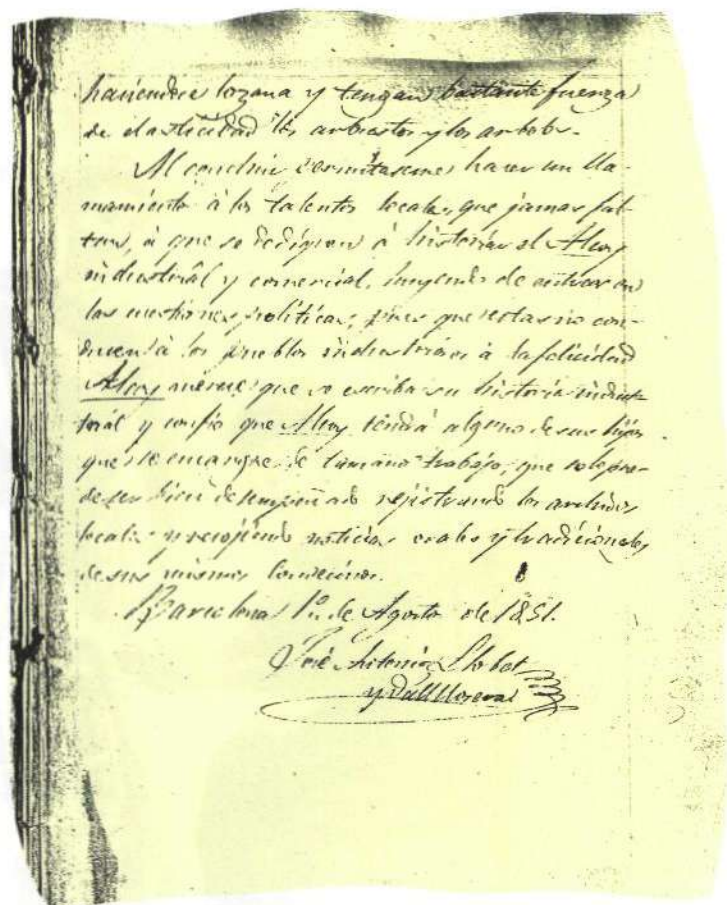 haciendose lozana y tengan bastante fuerza
de elasticidad los arbustos y los arboles.
Al concluir permitaseme hacer un lla-
mamiento à los talentos locales, que jamas fal-
tan, à que se dediquen à historiar el Alcoy
industrial y comercial, huyendo de entrar en
las cuestiones politicas, pues que estas no con-
ducen à los pueblos industriosos à la felicidad
Alcoy merece que se escriba su historia indus-
trial y confio que Alcoy tendrá alguno de sus hijos
que se encargue de tamaño trabajo, que solo pue-
de ser bien desempeñado rejistrando los archivos
locales y recojiendo noticias orales y tradicionales
de sus mismos convecinos.
Barcelona 1º de Agosto de 1851.
José Antonio Llobet
y Vallllosera